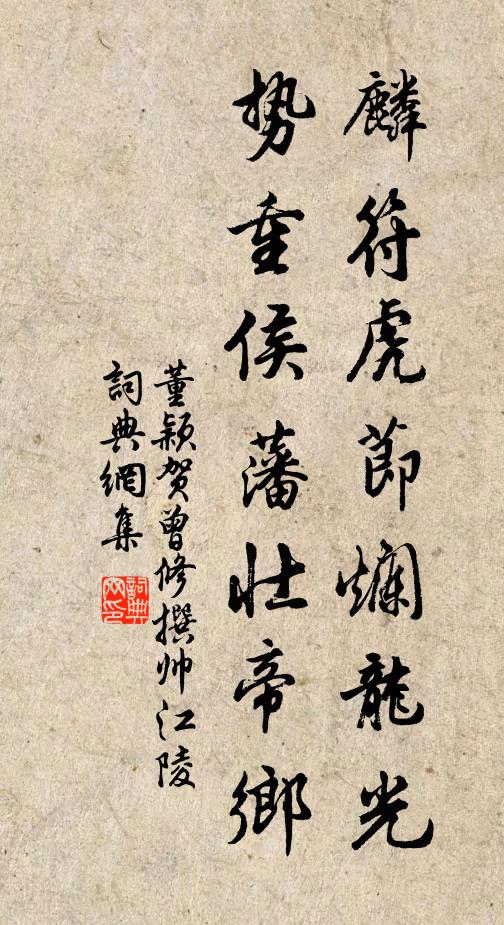 麟符虎節爛龍光
勢重侯藩壯帝鄉
董颖贺曾修撰帅江陵
詞典網集
詞典網印